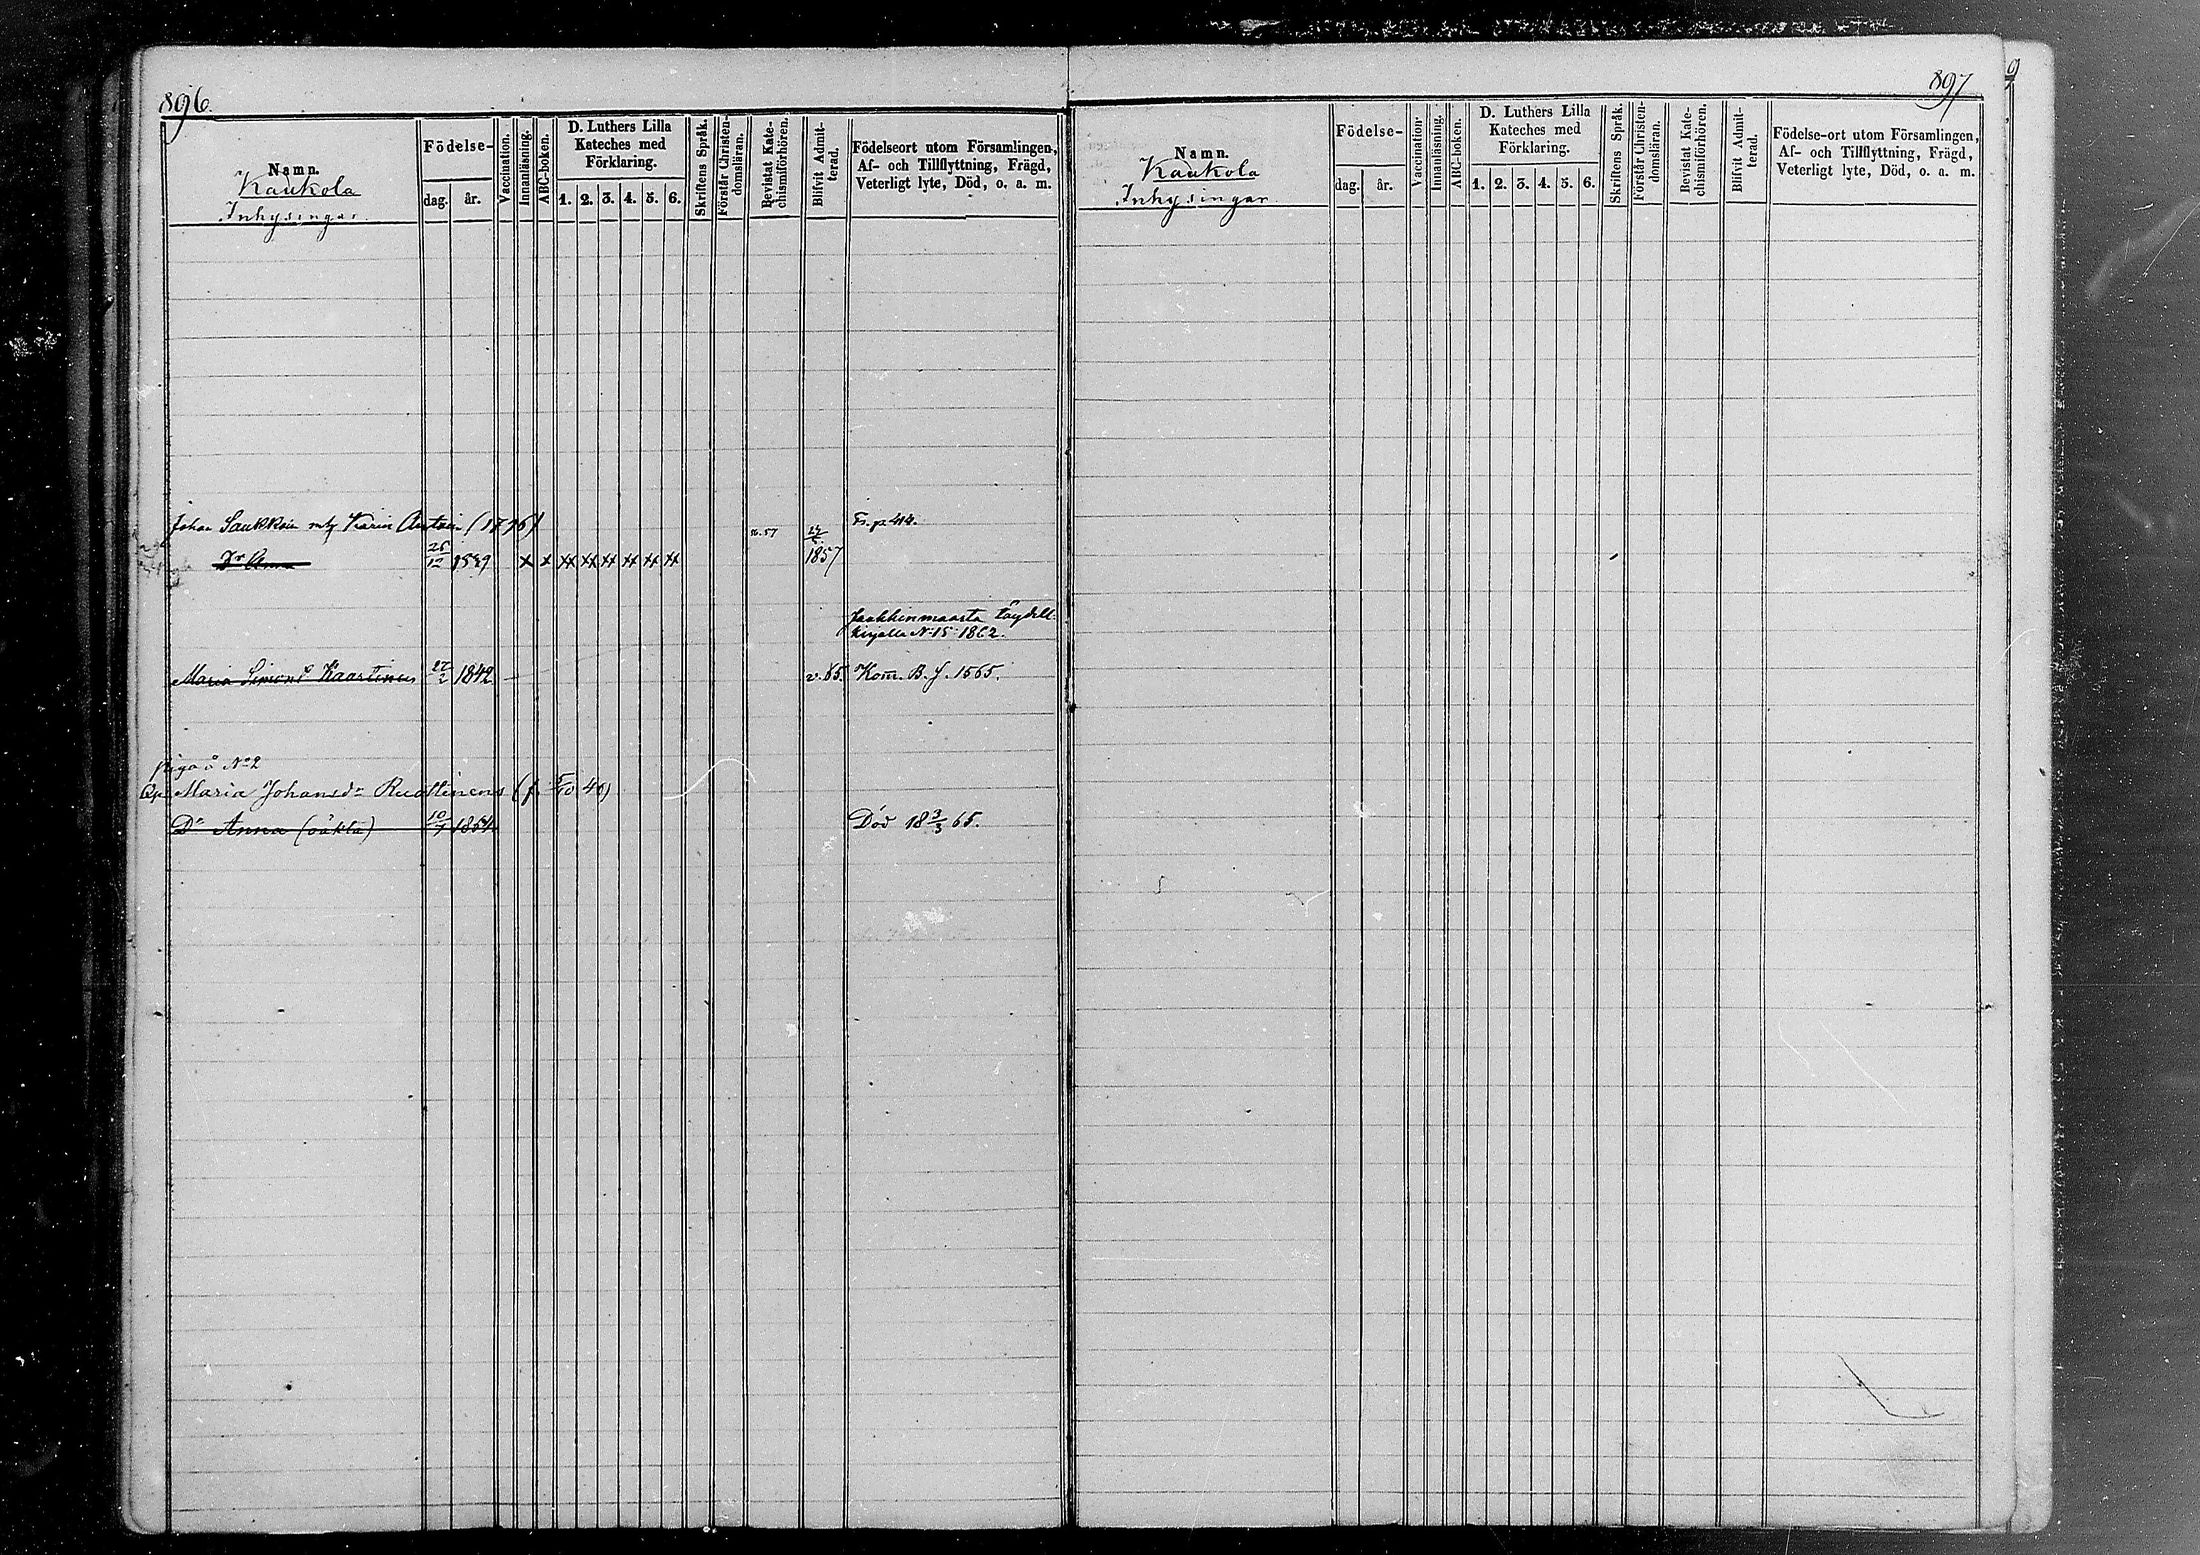 896.
Namn.
Kaukola
Inhysingar.
Födelse-
dag.
år.
Vaccination.
Innanläsning.
ABC-boken.
D. Luthers Lilla
Kateches med
Förklaring.
1. 2. 3. 4. 5. 6.
Skriftens Språk.
Förstår Christen-
domsläran.
Bevistat Kate-
chismiförhören.
Blifvit Admit-
terad.
Födelseort utom Församlingen,
Af- och Tillflyttning, Frägd,
Veterligt lyte, Död, o. a. m.
Johan Saukkoin Karin (1796)
Dr Anna 1839 x x xx xx xx xx xx xx 1857
täydell.
kirjalla N:15 1862.
Maria Simonsd Kaartinen 22/2 1842 v. 65. Kom. B. f. 1865.
piga å No 2
Maria Johansdr Ruottinens (f. 5/10 40)
Dr Anna (oäkta) 10/7 1864 Död 18 3/3 65.
897
Namn.
Kaukola
Inhysingar.
Födelse-
dag.
år.
Vaccination.
Innanläsning.
ABC-boken.
D. Luthers Lilla
Kateches med
Förklaring.
1. 2. 3. 4. 5. 6.
Skriftens Språk.
Förstår Christen-
domsläran.
Bevistat Kate-
chismiförhören.
Blifvit Admit-
terad.
Födelse-ort utom Församlingen,
Af- och Tillflyttning, Frägd,
Veterligt lyte, Död, o. a. m.